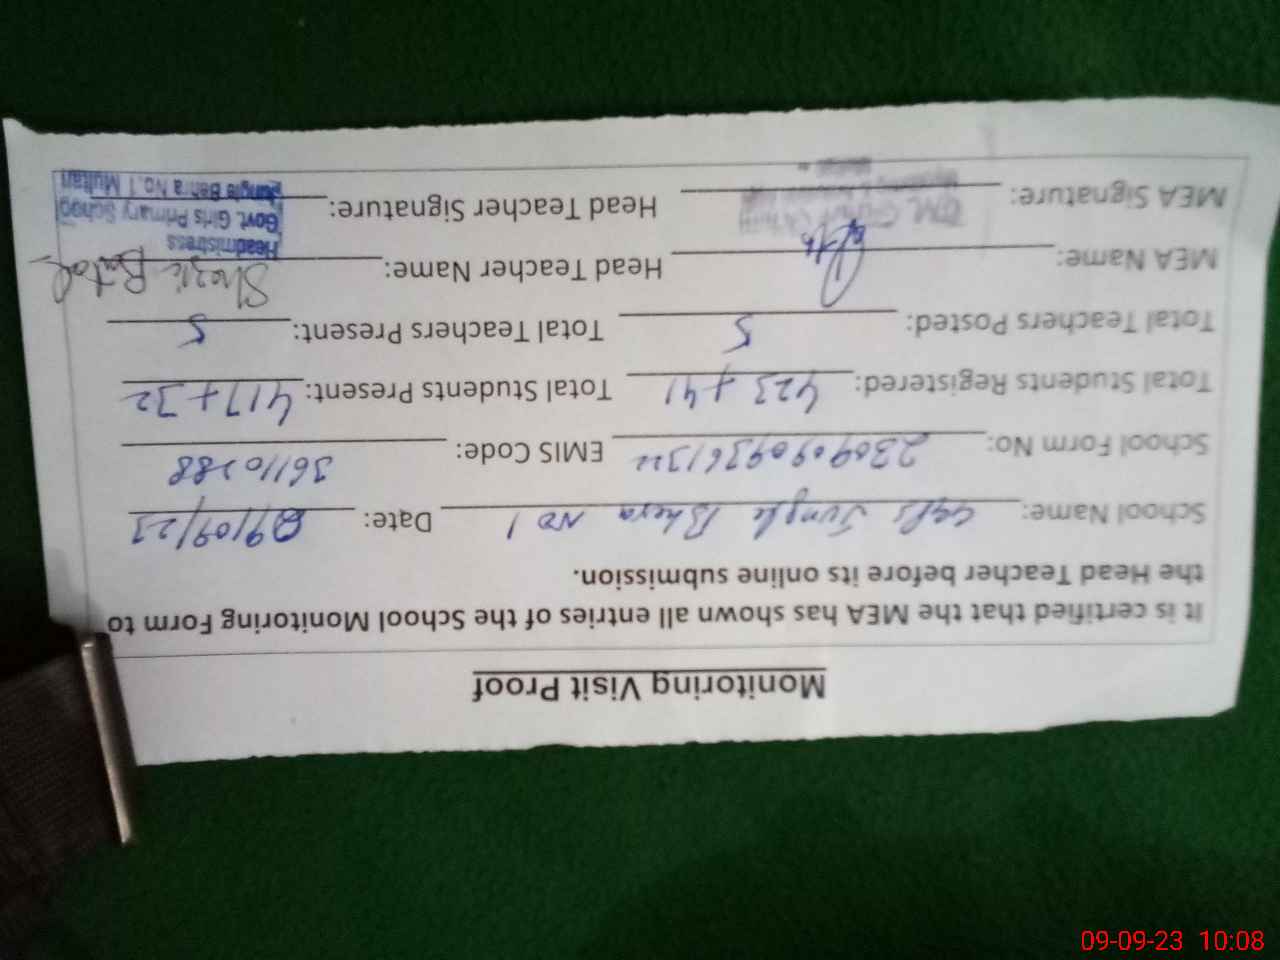 Monitoring Visit Proof
It is certified that the MEA has shown all entries of the School Monitoring Form to
the Head Teacher before its online submission.
School Name: GGPS Jungle Bhera NO 1 Date: 09/09/23
School Form No: EMIS Code: 36110288
Total Students Registered: 423+41 Total Students Present: 417+32
Total Teachers Posted: 5 Total Teachers Present: 5
MEA Name: Head Teacher Name: Shazia Batool
MEA Signature: Head Teacher Signature:
Headmistress
Govt. Girls Primary School
Jungle Behra No.1 Multan
09-09-23 10:08